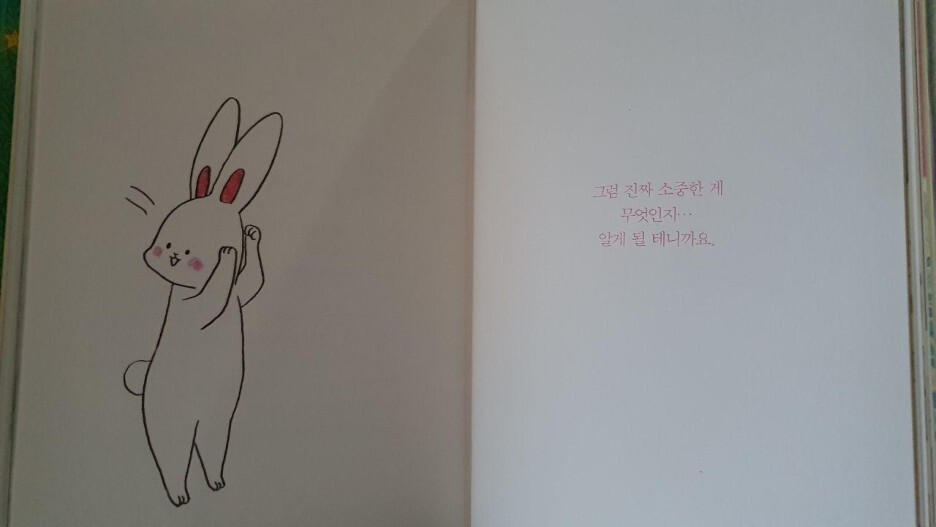 그럼 진짜 소중한 게
무엇인지…
알게 될 테니까요.